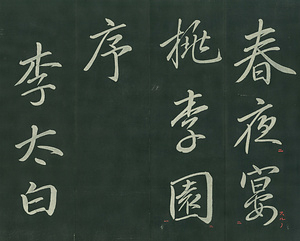 春夜宴
桃李園
序
李太白